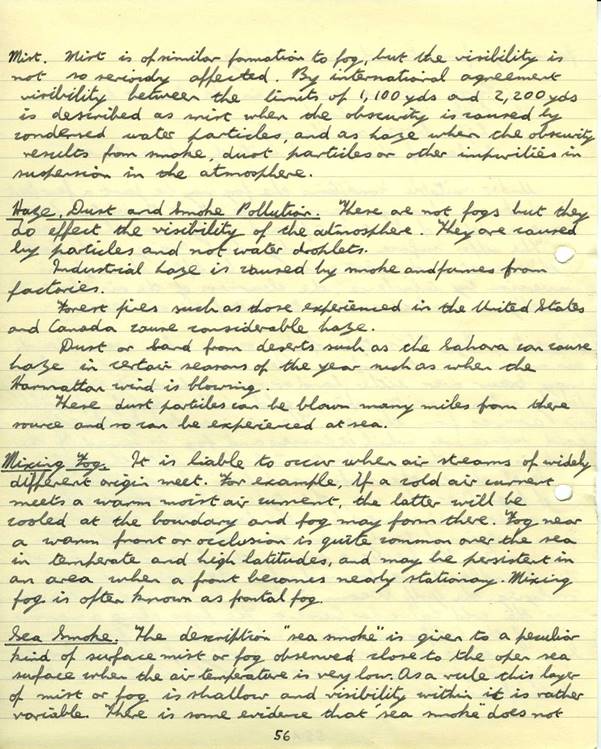 Mist. Mist is of similar formation to fog, but the visibility is
not so seriously affected. By international agreement
visibility between the limits of 1,100 yds and 2,200 yds
is described as mist when the obscurity is caused by
condensed water particles, and as haze when the obscurity
results from smoke, dust particles or other impurities in
suspension in the atmosphere.
Haze, Dust and Smoke Pollution. These are not fogs but they
do effect the visibility of the atmosphere. They are caused
by particles and not water droplets.
Industrial haze is caused by smoke and fumes from
factories.
Forest fires such as those experienced in the United States
and Canada cause considerable haze.
Dust or sand from deserts such as the Sahara can cause
haze in certain seasons of the year such as when the
Harmattan wind is blowing.
These dust particles can be blown many miles from there
source and so can be experienced at sea.
Mixing Fog. It is liable to occur when air streams of widely
different origin meet. For example, If a cold air current
meets a warm moist air current, the latter will be
cooled at the boundary and fog may form there. Fog near
a warm front or occlusion is quite common over the sea
in temperate and high latitudes, and may be persistent in
an area when a front becomes nearly stationary. Mixing
fog is often known as frontal fog.
Sea Smoke. The description "sea smoke" is given to a peculiar
kind of surface mist or fog observed close to the open sea
surface when the air temperature is very low. As a rule this layer
of mist or fog is shallow and visibility within it is rather
variable. There is some evidence that "sea smoke" does not
56